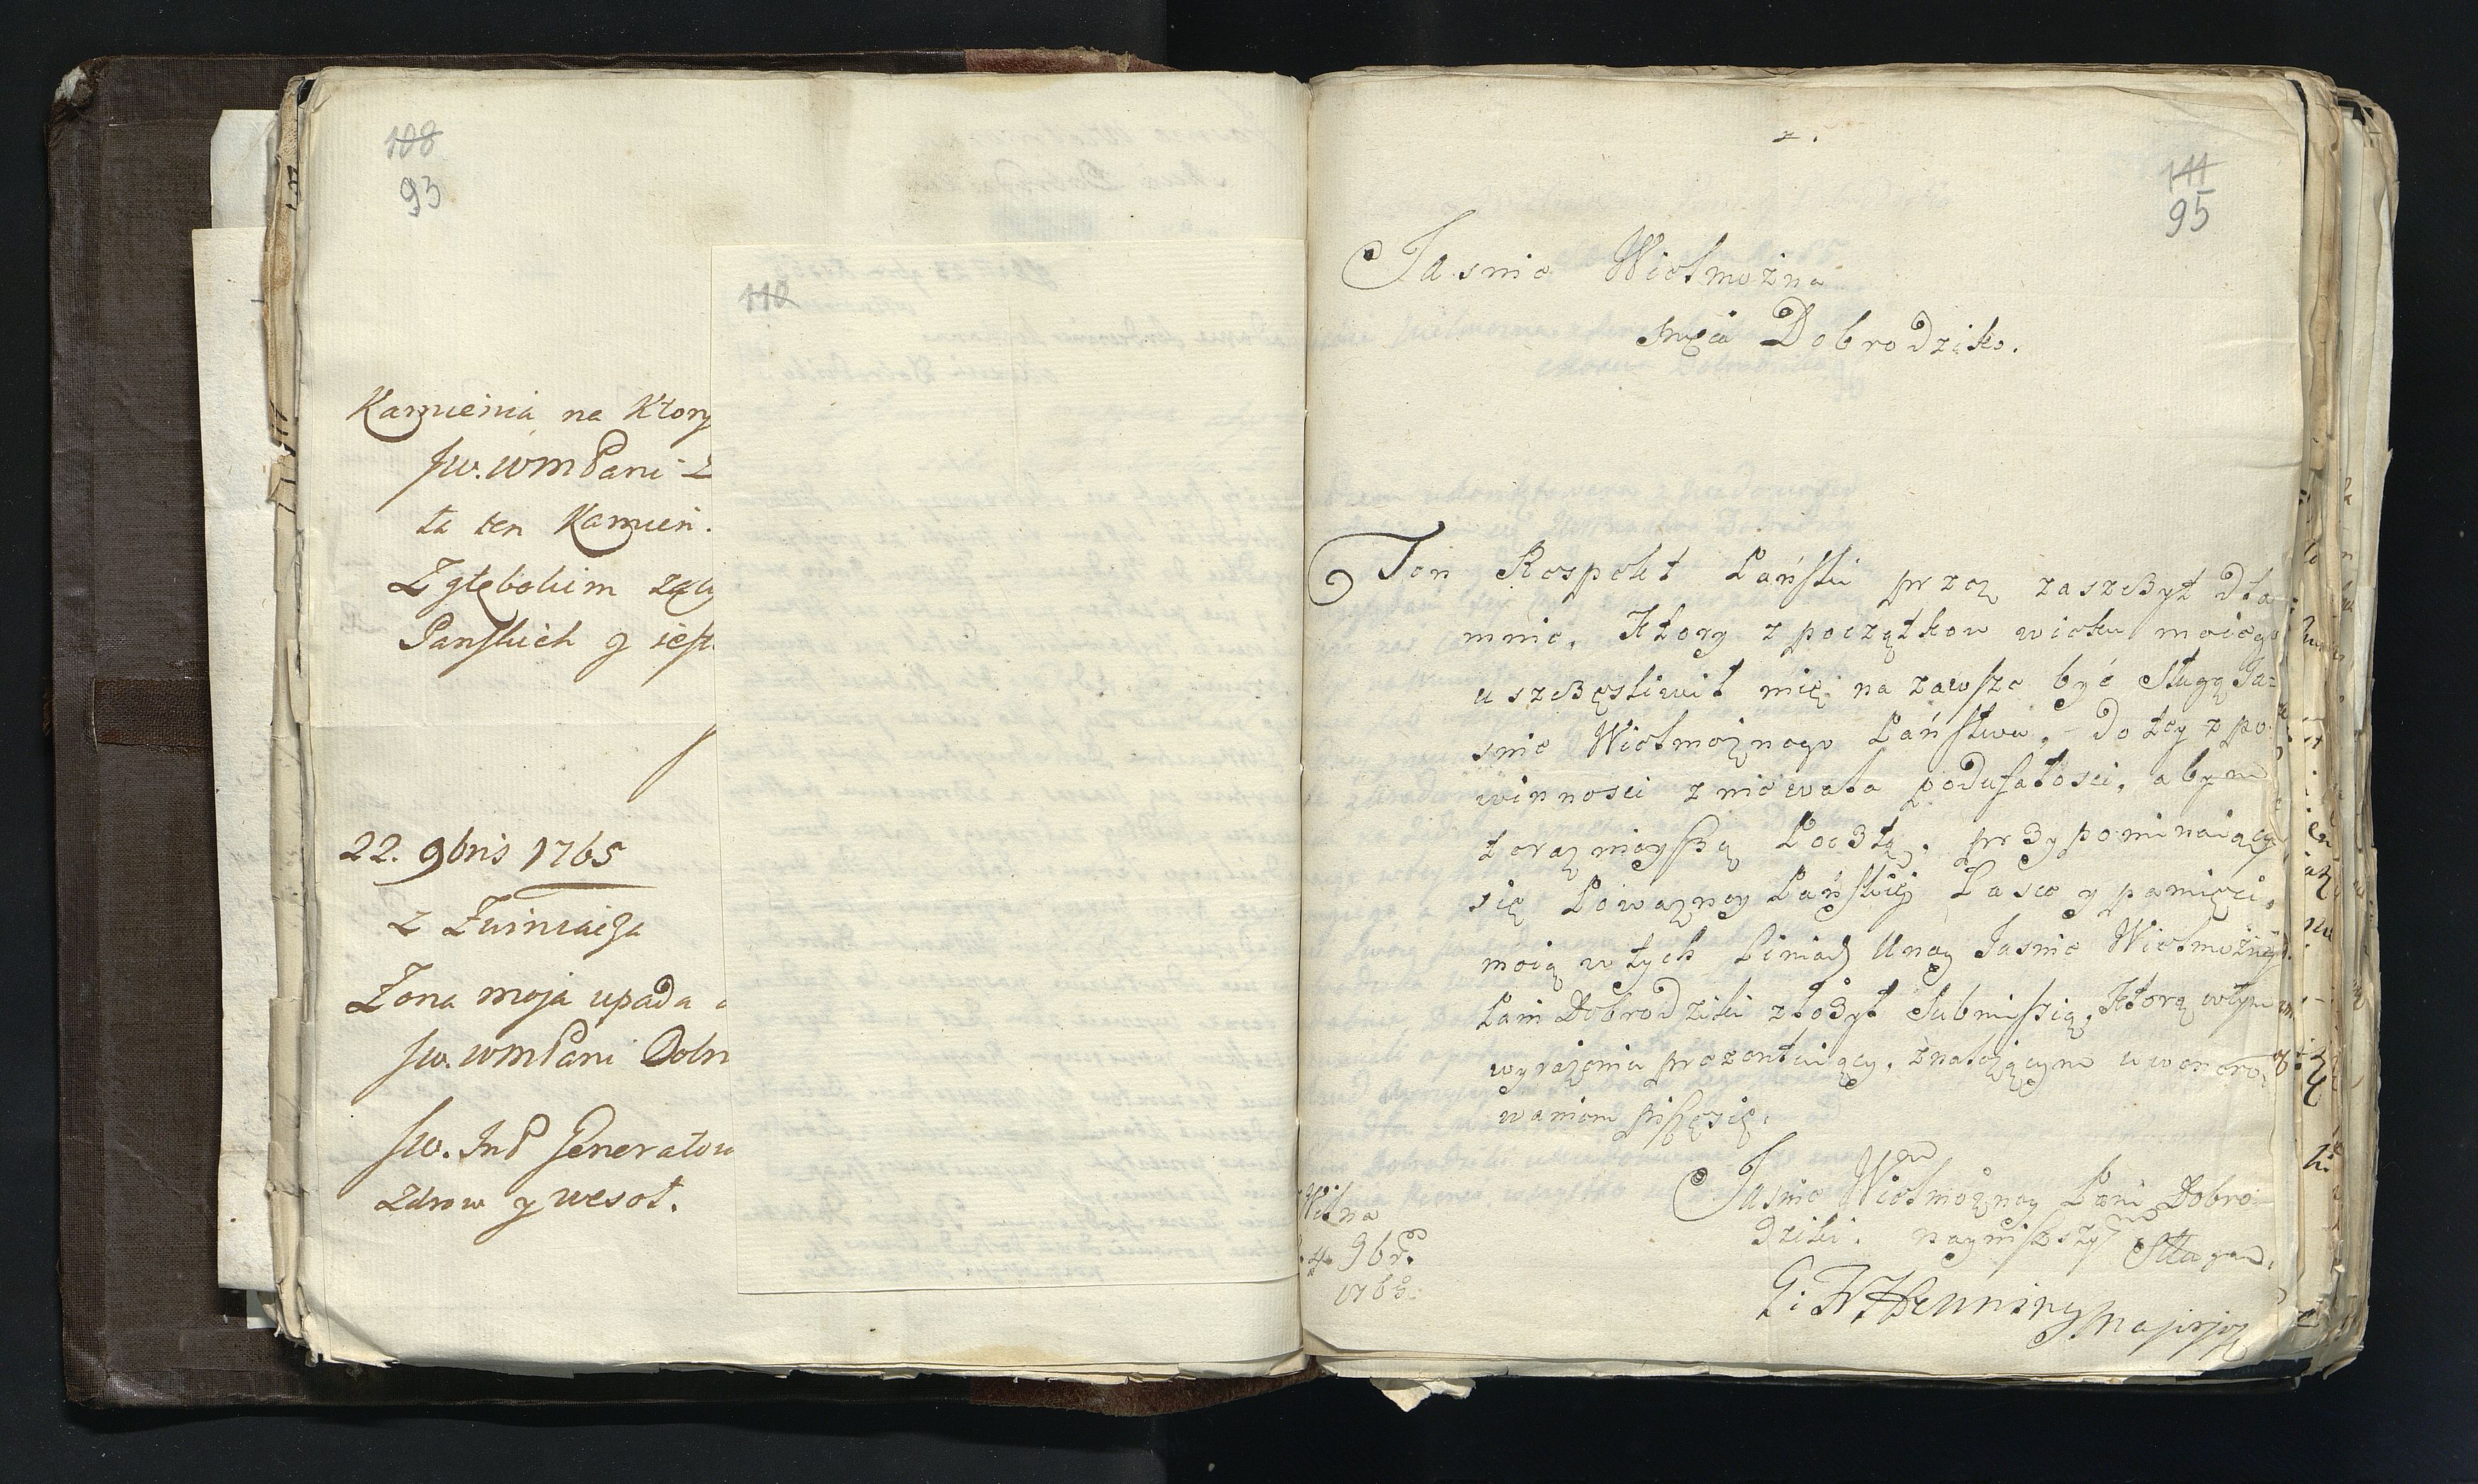 108
93
Kamienia na Ktory
JW. WM Pani
ta ten Kamien.
Z głębokim
Panskich y
22. 9bris 1765
z
Zona moja upada
JW. WM Pani Dobr
JW. Im P Generałow
Zdrow y wesoł.
110
111
95
Jasnie Wielmożna
Mcia Dobrodziko.
Ten Respekt Pański przez zaszczyt dla
mnie, Ktory z początkow wieku moiego
uszczęsliwił mię na zawsze być Sługą Ja=
snie Wielmoznego Państwa, do tey z po
winnosci zniewala poufałosci, abym
teraznieyszą Pocztą, przypominaiący
się Powazney Pańskiey Łasce y pamięci,
moią w tych Liniach Unay Jasnie Wielmożney
Pani Dobrodziki złożył Submissią, Ktorą wtym
wyrażeniu prezentuiący, znalezącym uwenero
waniem piszę się,
Jasnie Wielmożney Pani Dobro
dziki. nayniszszym Sługa
Wilna
4 9br
1765
G: F Henning